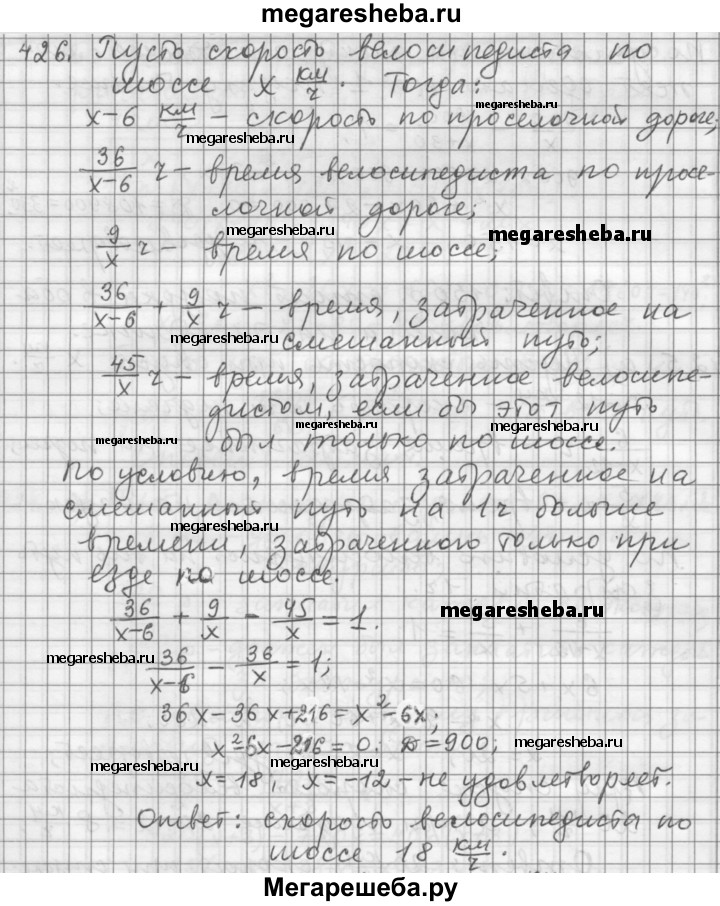 megaresheba.ru
426. Пусть скорость велосипедиста по
шоссе x км/ч. Тогда:
megaresheba.ru
x-6 км/ч - скорость по проселочной дороге;
megaresheba.ru
36/(x-6) ч - время велосипедиста по просе-
лочной дороге;
megaresheba.ru
megaresheba.ru
9/x ч - время по шоссе;
36/(x-6) + 9/x ч - время, затраченное на
megaresheba.ru
смешанный путь;
45/x ч - время, затраченное велосипе-
дистом, если бы этот путь
megaresheba.ru
megaresheba.ru
megaresheba.ru
был только по шоссе.
По условию, время затраченное на
смешанный путь на 1ч больше
megaresheba.ru
времени, затраченного только при
езде по шоссе.
36/(x-6) + 9/x - 45/x = 1.
megaresheba.ru
megaresheba.ru
36/(x-6) - 36/x = 1;
36x-36x+216=x²-6x;
x²-6x-216=0; D=900;
megaresheba.ru
megaresheba.ru
x=18; x=-12 - не удовлетворяет.
megaresheba.ru
Ответ: скорость велосипедиста по
шоссе 18 км/ч.
Мегарешеба.ру